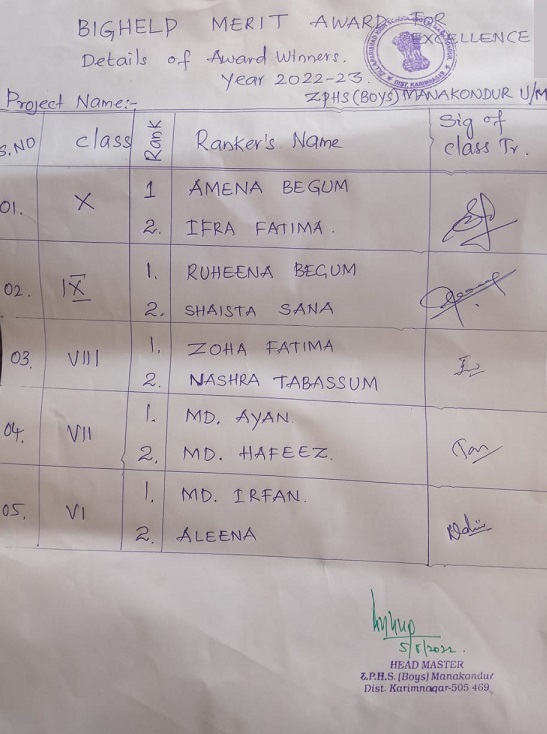 BIGHELP MERIT AWARD FOR EXCELLENCE
Details of Award Winners.
Year 2022-23.
Project Name:- ZPHS(BOYS) MANAKONDUR U/M
S.NO class Rank Ranker's Name Sig of class Tr.
01. X 1 AMENA BEGUM
2. IFRA FATIMA.
02. IX 1. RUHEENA BEGUM
2. SHAISTA SANA
03. VIII 1. ZOHA FATIMA
2. NASHRA TABASSUM
04. VII 1. MD. AYAN.
2. MD. HAFEEZ.
05. VI 1. MD. IRFAN.
2. ALEENA
5/8/2022.
HEAD MASTER
Z.P.H.S. (Boys) Manakondur
Dist. Karimnagar-505 469.